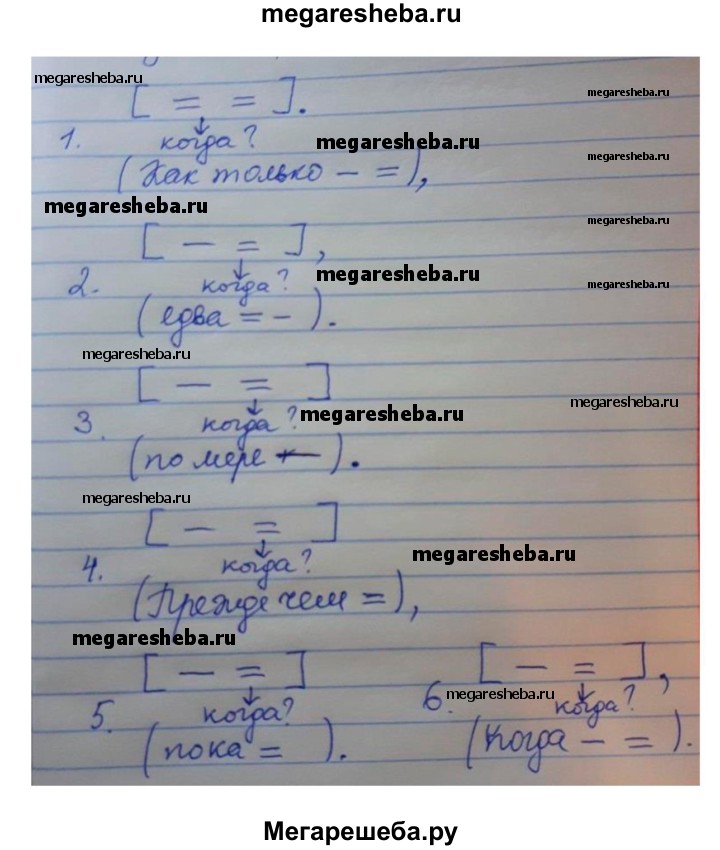 megaresheba.ru
megaresheba.ru
[ = = ].
megaresheba.ru
1. когда? megaresheba.ru
megaresheba.ru
(Как только – =),
megaresheba.ru
megaresheba.ru
[ – = ],
2. когда? megaresheba.ru
megaresheba.ru
(едва = – ).
megaresheba.ru
[ – = ]
megaresheba.ru
3. когда? megaresheba.ru
(по мере – ).
megaresheba.ru
[ – = ]
4. когда? megaresheba.ru
(Прежде чем =),
megaresheba.ru
[ – = ]
5. когда?
(пока = ).
[ – = ],
6. megaresheba.ru когда?
(Когда – = ).
Мегарешеба.ру